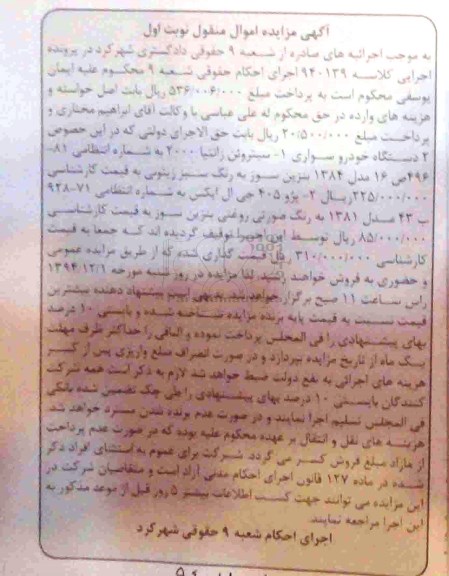 آگهی مزایده اموال منقول نوبت اول
به موجب اجرائیه های صادره از شعبه ۹ حقوقی دادگستری شهرکرد در پرونده
اجرایی کلاسه ۹۴۰۱۳۹ اجرای احکام حقوقی شعبه ۹ محکوم علیه ایمان
یوسفی محکوم است به پرداخت مبلغ ۵۳۶/۰۰۶/۰۰۰ ریال بابت اصل خواسته و
هزینه های وارده در حق محکوم له علی عباسی با وکالت آقای ابراهیم مختاری و
پرداخت مبلغ ۲۰/۵۰۰/۰۰۰ ریال بابت حق الاجرای دولتی که در این خصوص
۲ دستگاه خودرو سواری ۱- سیتروئن زانتیا ۲۰۰۰ به شماره انتظامی ۸۱-
۴۹۶ص ۱۶ مدل ۱۳۸۴ بنزین سوز به رنگ سبز زیتونی به قیمت کارشناسی
۲۲۵/۰۰۰/۰۰۰ریال ۲- پژو ۴۰۵ جی ال ایکس به شماره انتظامی ۷۱-۹۲۸
ب ۴۳ مدل ۱۳۸۱ به رنگ صورتی روغنی بنزین سوز به قیمت کارشناسی
۸۵/۰۰۰/۰۰۰ ریال توسط این اجرا توقیف گردیده اند که جمعا به قیمت
کارشناسی ۳۱۰/۰۰۰/۰۰۰ ریال قیمت گذاری شده که از طریق مزایده عمومی
و حضوری به فروش خواهند رسید. لذا مزایده در روز شنبه مورخه ۱۳۹۴/۱۲/۱
راس ساعت ۱۱ صبح برگزار خواهد شد بدیهی است پیشنهاد دهنده بیشترین
قیمت نسبت به قیمت پایه برنده مزایده شناخته شده و بایستی ۱۰ درصد
بهای پیشنهادی را فی المجلس پرداخت نموده و الباقی را حداکثر ظرف مهلت
یک ماه از تاریخ مزایده بپردازد و در صورت انصراف مبلغ واریزی پس از کسر
هزینه های اجرائی به نفع دولت ضبط خواهد شد لازم به ذکر است همه شرکت
کنندگان بایستی ۱۰ درصد بهای پیشنهادی را طی چک تضمین شده بانکی
فی المجلس تسلیم اجرا نمایند و در صورت عدم برنده شدن مسترد خواهد شد.
هزینه های نقل و انتقال بر عهده محکوم علیه بوده که در صورت عدم پرداخت
از مازاد مبلغ فروش کسر می گردد شرکت برای عموم به استثنای افراد ذکر
شده در ماده ۱۲۷ قانون اجرای احکام مدنی آزاد است و متقاضیان شرکت در
این مزایده می توانند جهت کسب اطلاعات بیشتر ۵ روز قبل از موعد مذکور به
این اجرا مراجعه نمایند.
اجرای احکام شعبه ۹ حقوقی شهرکرد